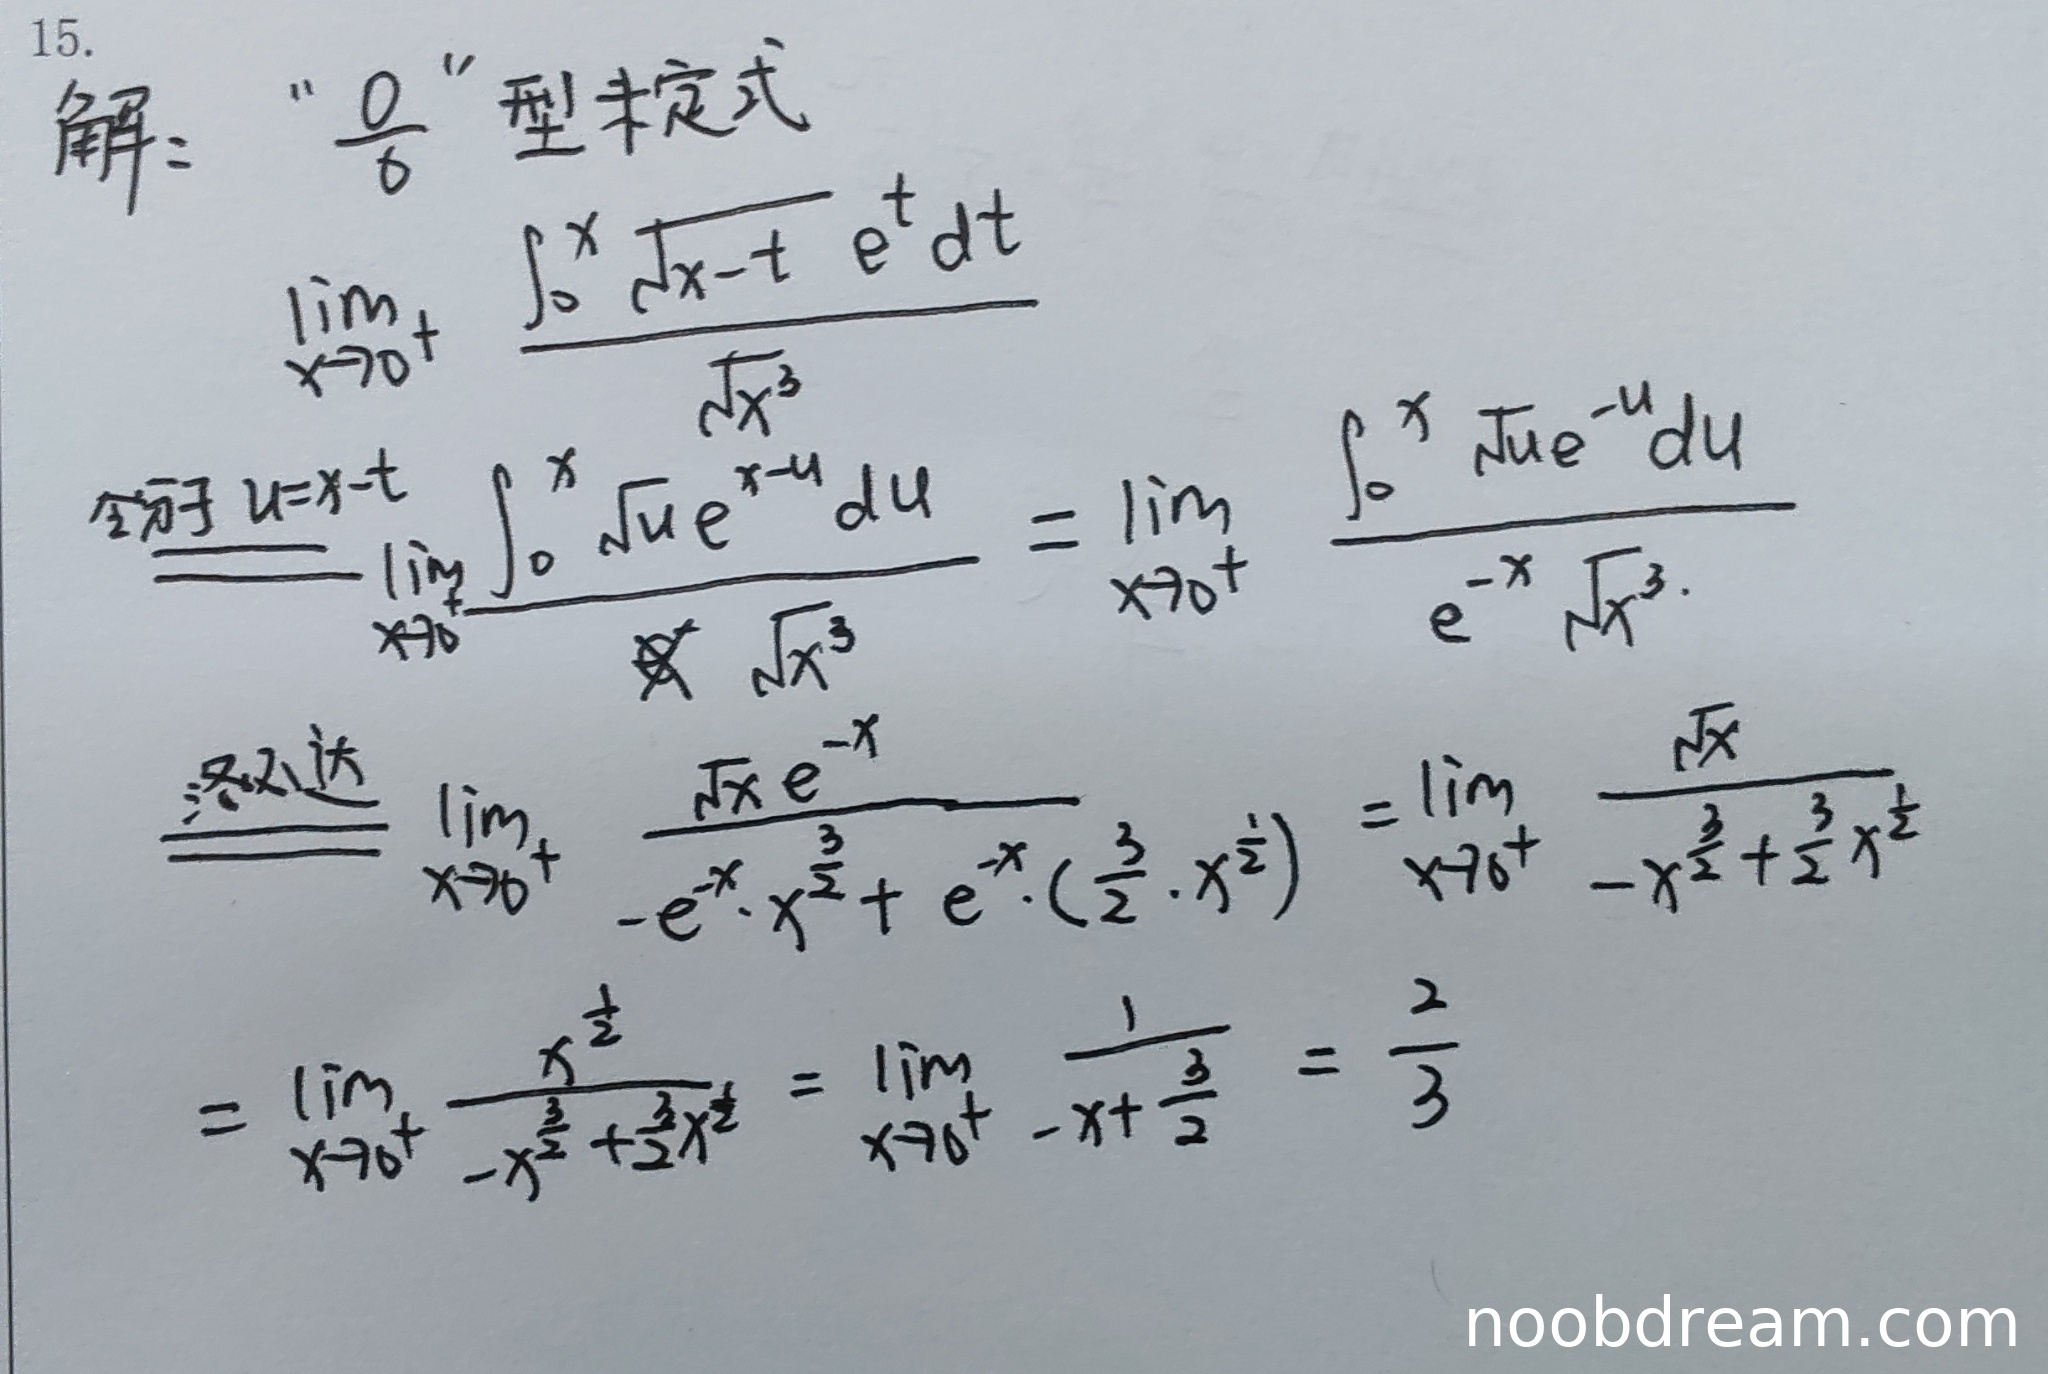 15.
解: “0/0”型未定式
lim x→0⁺ ∫₀ˣ √(x-t) eᵗ dt / √x³
令分子 u=x-t lim x→0⁺ ∫₀ˣ √u e^(x-u) du / √x³ = lim x→0⁺ ∫₀ˣ √u e^(-u) du / e^(-x) √x³.
洛必达 lim x→0⁺ √x e^(-x) / -e^(-x)·x^(3/2) + e^(-x)·(3/2·x^(1/2)) = lim x→0⁺ √x / -x^(3/2) + 3/2 x^(1/2)
= lim x→0⁺ x^(1/2) / -x^(3/2) + 3/2 x^(1/2) = lim x→0⁺ 1 / -x + 3/2 = 2/3
noobdream.com